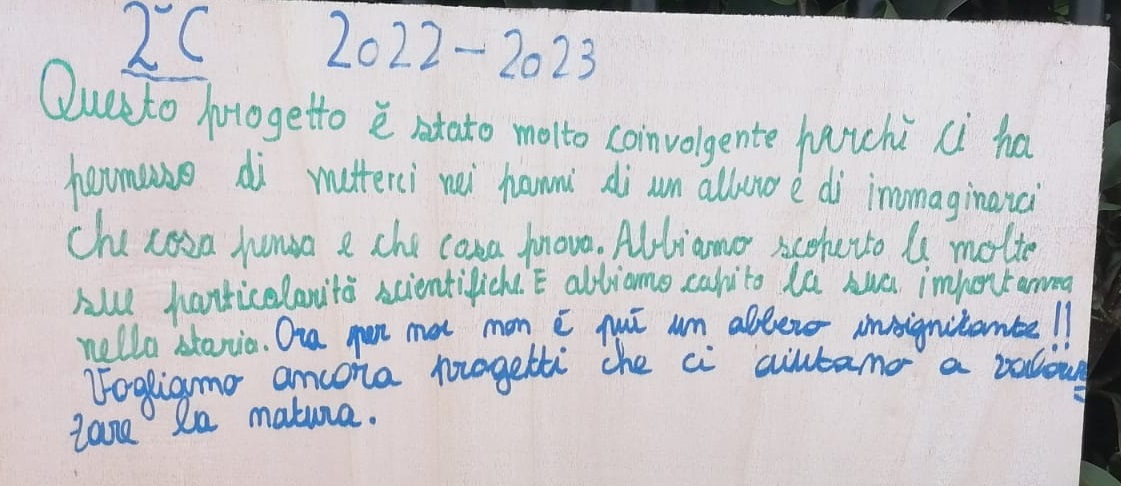 2ᵃC 2022-2023
Questo progetto è stato molto coinvolgente perchè ci ha
permesso di metterci nei panni di un albero e di immaginarci
che cosa pensa e che cosa prova. Abbiamo scoperto le molte
sue particolarità scientifiche. E abbiamo capito la sua importanza
nella storia. Ora per noi non è più un albero insignificante!!
Vogliamo ancora progetti che ci aiutano a valoriz=
zare la natura.